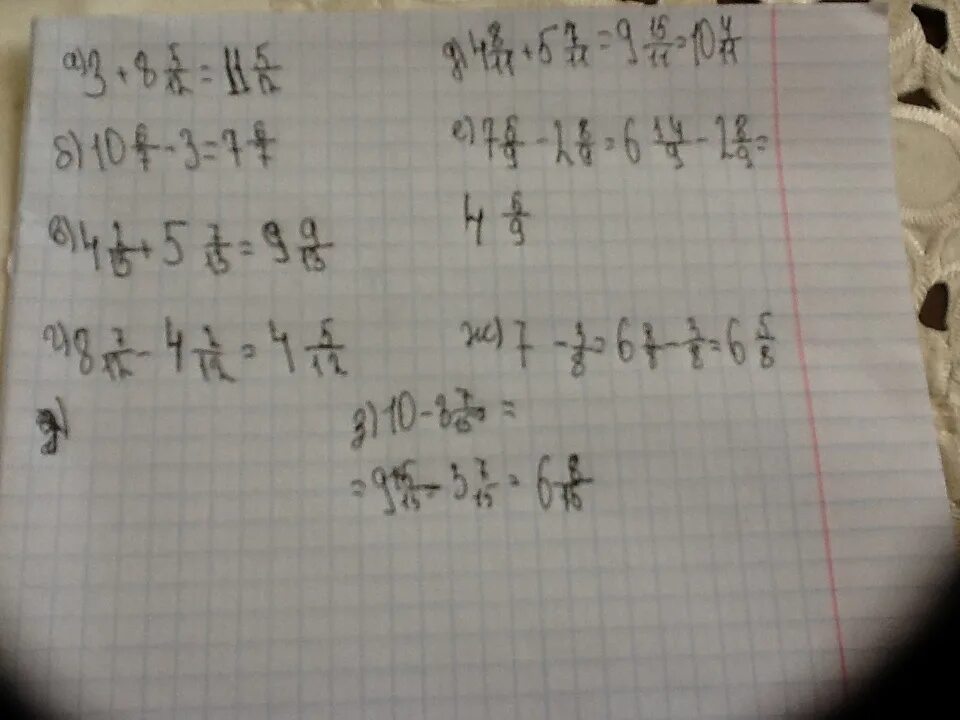 а) 3 + 8 5/12 = 11 5/12
б) 10 6/7 - 3 = 7 6/7
в) 4 2/15 + 5 7/15 = 9 9/15
г) 8 7/12 - 4 2/12 = 4 5/12
д) 4 8/11 + 5 7/11 = 9 15/11 = 10 4/11
е) 7 5/9 - 2 8/9 = 6 14/9 - 2 8/9 =
4 6/9
ж) 7 - 3/8 = 6 8/8 - 3/8 = 6 5/8
з) 10 - 3 7/15 =
= 9 15/15 - 3 7/15 = 6 8/15